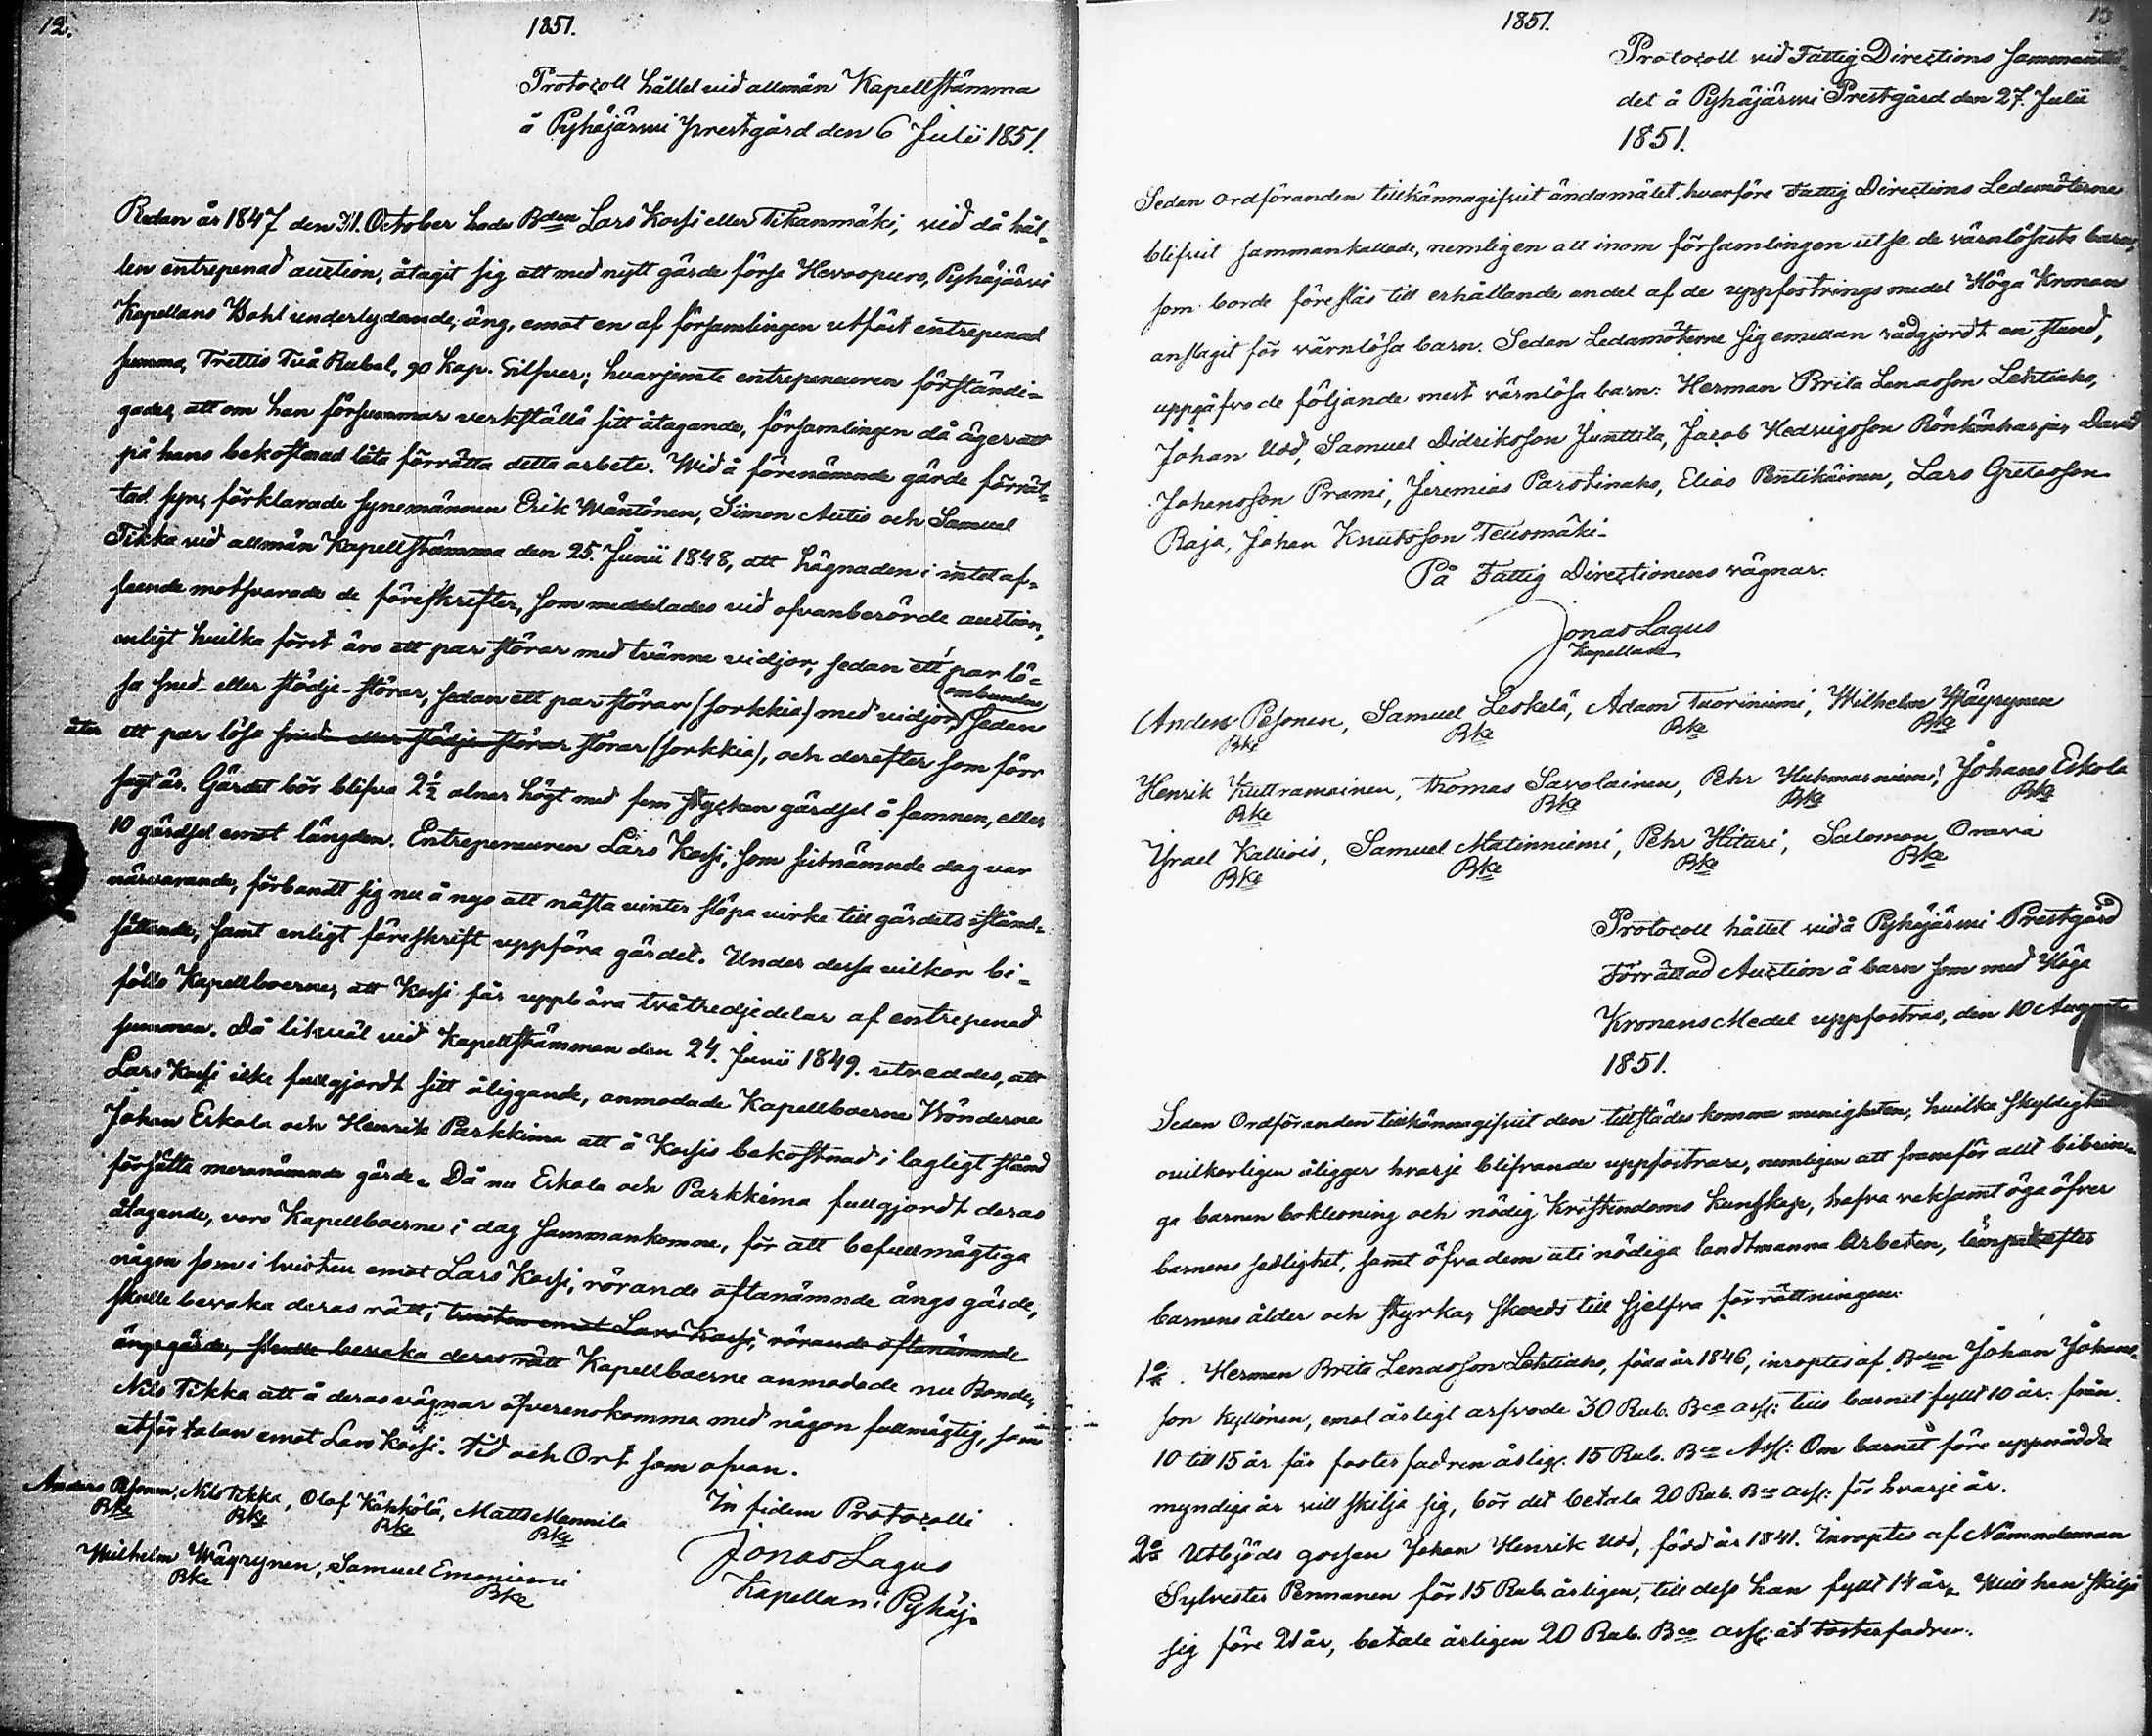 12.
1851.
Protocoll hållet vid allmän Kapellstämma
å Pyhäjärvi prestgård den 6 Julii 1851.
Redan år 1847 den 31. October hade Bden Lars Kossi eller Tikanmäki, vid då hål-
len entrepenad auction, åtagit sig att med nytt gärde förse Hervopuro, Pyhäjärvi
Kapellans Bohl underlydande, äng, emot en af församlingen utfäst entrepenad
summa, Trettio Två Rubel, 90 kop. Silfver; hvarjemte entrepeneuren förständi-
gades, att om han försummar verkställa sitt åtagande, församlingen då äger att
på hans bekostnad låta förrätta detta arbete. Wid å förenämnde gärde förrät-
tad syn, förklarade synemännen Erik Mäntönen, Simon Autio och Samuel
Tikka vid allmän Kapellstämma den 25. Junii 1848, att hägnaden i intet af-
seende motsvarade de föreskrifter, som meddelades vid ofvanberörde auction,
enligt hvilka först äro ett par störar med tvänne vidjor, sedan ett par lö-
sa sned- eller stödje-störar, sedan ett par störar (sorkkia) med vidjor, ombundna sedan
åter ett par lösa sned- eller stödje-störar störar (sorkkia), och derefter som förr
sagt är. Gärdet bör blifva 2½ alnar högt med fem stycken gärdsel å famnen, eller
10 gärdsel emot längden. Entrepeneuren Lars Kossi, som sistnämnde dag var
närvarande, förbandt sig nu å nyo att nästa vinter släpa virke till gärdets istånd-
sättande, samt enligt föreskrift uppföra gärdet. Under dessa vilkor bi-
föllo Kapellboerne, att Kossi får uppbära tvåtredjedelar af entrepenad
summan. Då likväl vid Kapellstämman den 24. Junii 1849. utreddes, att
Lars Kossi icke fullgjordt sitt åliggande, anmodade Kapellboerne Bönderne
Johan Eskola och Henrik Parkkima att å Kossis bekostnad i lagligt stånd
försätta meranämnde gärde. Då nu Eskola och Parkkima fullgjordt deras
åtagande, voro Kapellboerne i dag sammankomne, för att befullmägtiga
någon som i tvisten emot Lars Kossi, rörande oftanämnde ängs gärde,
skulle bevaka deras rätt; tvisten emot Lars Kossi, rörande oftanämnde
ängsgärde, skulle bevaka deras rätt Kapellboerne anmodade nu Bonden
Nils Tikka att å deras vägnar öfverenskomma med någon fullmägtig, som
utför talan emot Lars Kossi. Tid och Ort som ofvan.
In fidem Protocolli
Anders Pesonen, Nils Tikka, Olof Kähkölä, Matts Mannila
Bke Bke Bke Bke
Jonas Lagus
Wilhelm Wäyrynen, Samuel Emoniemi
Bke Bke
Kapellan i Pyhäj.
13
1851.
Protocoll vid Fattig Directions samman
det å Pyhäjärvi Prestgård den 27. Julii
1851.
Sedan ordföranden tillkännagifvit ändamålet, hvarföre Fattig Directions Ledamöterne
blifvit sammankallade, nemligen att inom församlingen utse de värnlösaste barn,
som borde föreslås till erhållande andel af de uppfostrings medel Höga Kronan
anslagit för värnlösa barn. Sedan Ledamöterne sig emellan rådgjordt en stund,
uppgåfvo de följande mest värnlösa barn: Herman Brita Lenasson Lehtiaho,
Johan Udd, Samuel Didriksson Junttila, Jacob Hedvigsson Rönkönharju, David
Johansson Prami, Jeremias Parotinaho, Elias Pentikäinen, Lars Gretasson
Raja, Johan Knutsson Teuomäki.
På Fattig Directionens vägnar:
Jonas Lagus
Kapellan
Anders Pesonen, Samuel Leskelä, Adam Tuoriniemi, Wilhelm Wäyrynen
Bke Bke Bke Bke
Henrik Kuttramainen, Thomas Savolainen, Pehr Huhmarniemi, Johans Eskola
Bke Bke Bke Bke
Israel Kalliois, Samuel Matinniemi, Pehr Hitari, Salomon Orava
Bke Bke Bke Bke
Protocoll hållet vid å Pyhäjärvi Prestgård
Förrättad Auction å barn som med Höga
Kronans Medel uppfostras, den 10 Augusti
1851.
Sedan Ordföranden tillkännagifvit den tillstädes komna menigheten, hvilka skyldigheter
ovilkorligen åligger hvarje blifvande uppfostrare, nemligen att framför allt bibrin-
ga barnen boklesning och nödig Kristendoms kunskap, hafva vaksamt öga öfver
barnens sedlighet, samt öfva dem uti nödiga landtmanna Arbeten, lämpadt efter
barnens ålder och styrka, skreds till sjelfva förrättningen:
1o. Herman Brita Lenasson Lehtiaho, född år 1846, inroptes af Bden Johan Johans-
son Kyllönen, emot årligt arfvode 30 Rub. Bco ass: tills barnet fyllt 10 år: från
10 till 15 år får fosterfadren årlig. 15 Rub. Bco Ass: Om barnet före uppnådda
myndige år vill skilja sig, bör det betala 20 Rub. Bco ass: för hvarje år.
2o Utbjöds gossen Johan Henrik Udd, född år 1841. Inroptes af Nämndeman
Sylvester Pennanen för 15 Rub. årligen, till dess han fyllt 14 år. Will han skilja
sig före 21 år, betale årligen 20 Rub. Bco ass: åt Fosterfadren.